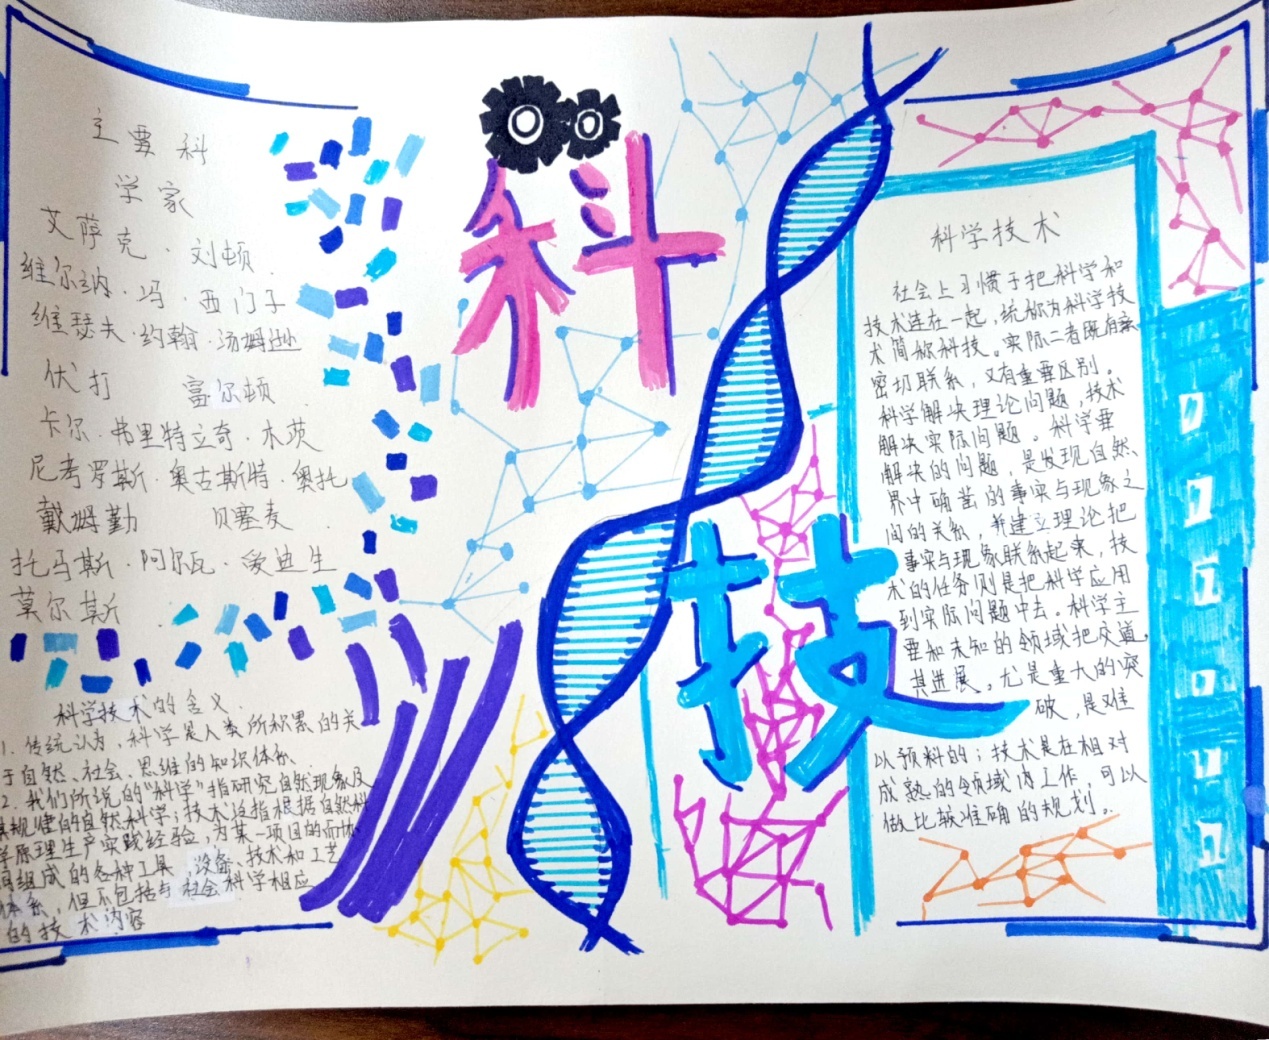 主要科
学家
艾萨克·刘顿
维尔纳·冯·西门子
维瑟夫·约翰·汤姆逊
伏打 富尔顿
卡尔·弗里特立奇·本茨
尼考罗斯·奥古斯特·奥托
戴姆勤 贝塞麦
托马斯·阿尔瓦·爱迪生
莫尔斯
科学技术的含义
1. 传统认为,科学是人类所积累的关
于自然、社会、思维的知识体系、
2. 我们所说的“科学”指研究自然现象及
其规律的自然科学;技术泛指根据自然科
学原理生产实践经验,为某一项目的而协
同组成的各种工具,设备、技术和工艺
体系,但不包括与社会科学相应
的技术内容
科
技
科学技术
社会上习惯于把科学和
技术连在一起,统称为科学技
术简称科技。实际二者既有亲
密切联系,又有重要区别。
科学解决理论问题,技术
解决实际问题。科学要
解决的问题,是发现自然、
界中确凿的事实与现象之
间的关系,并建立理论把
事实与现象联系起来,技
术的任务则是把科学应用
到实际问题中去。科学主
要和未知的领域把交道,
其进展,尤是重大的突
破,是难
以预料的;技术是在相对
成熟的领域内工作,可以
做比较准确的规划。